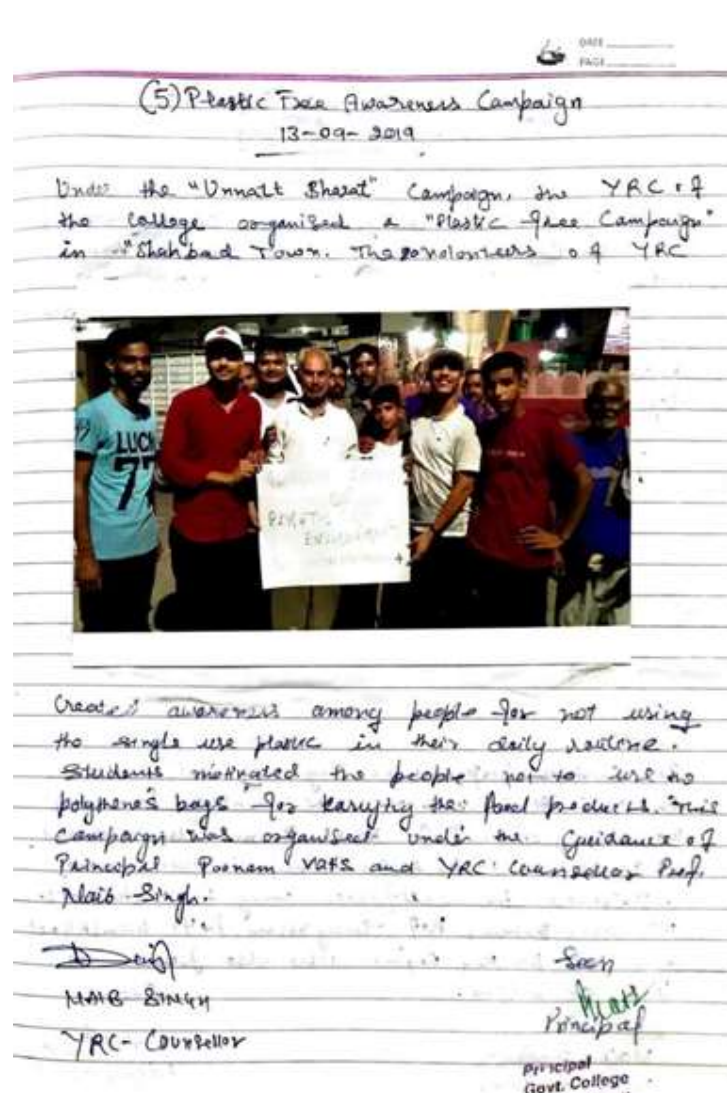 DATE
PAGE
(5) Plastic Free Awareness Campaign
13-09-2019
Under the "Unnatt Bharat" Campaign, the YRC of
the college organised a "Plastic free Campaign"
in "Shahbad Town. The volonteers of YRC
LUCK
77
Created awareness among people for not using
the single use plastic in their daily routine.
Students motivated the people not to use
polythene's bags for karrying the food products. This
Campaign was organised under the Gueidance of
Principal Poonam Vats and YRC Counsellor Prof.
Naib Singh.
NAIB SINGH
YRC- Counsellor
Seen
Principal
Principal
Govt. College